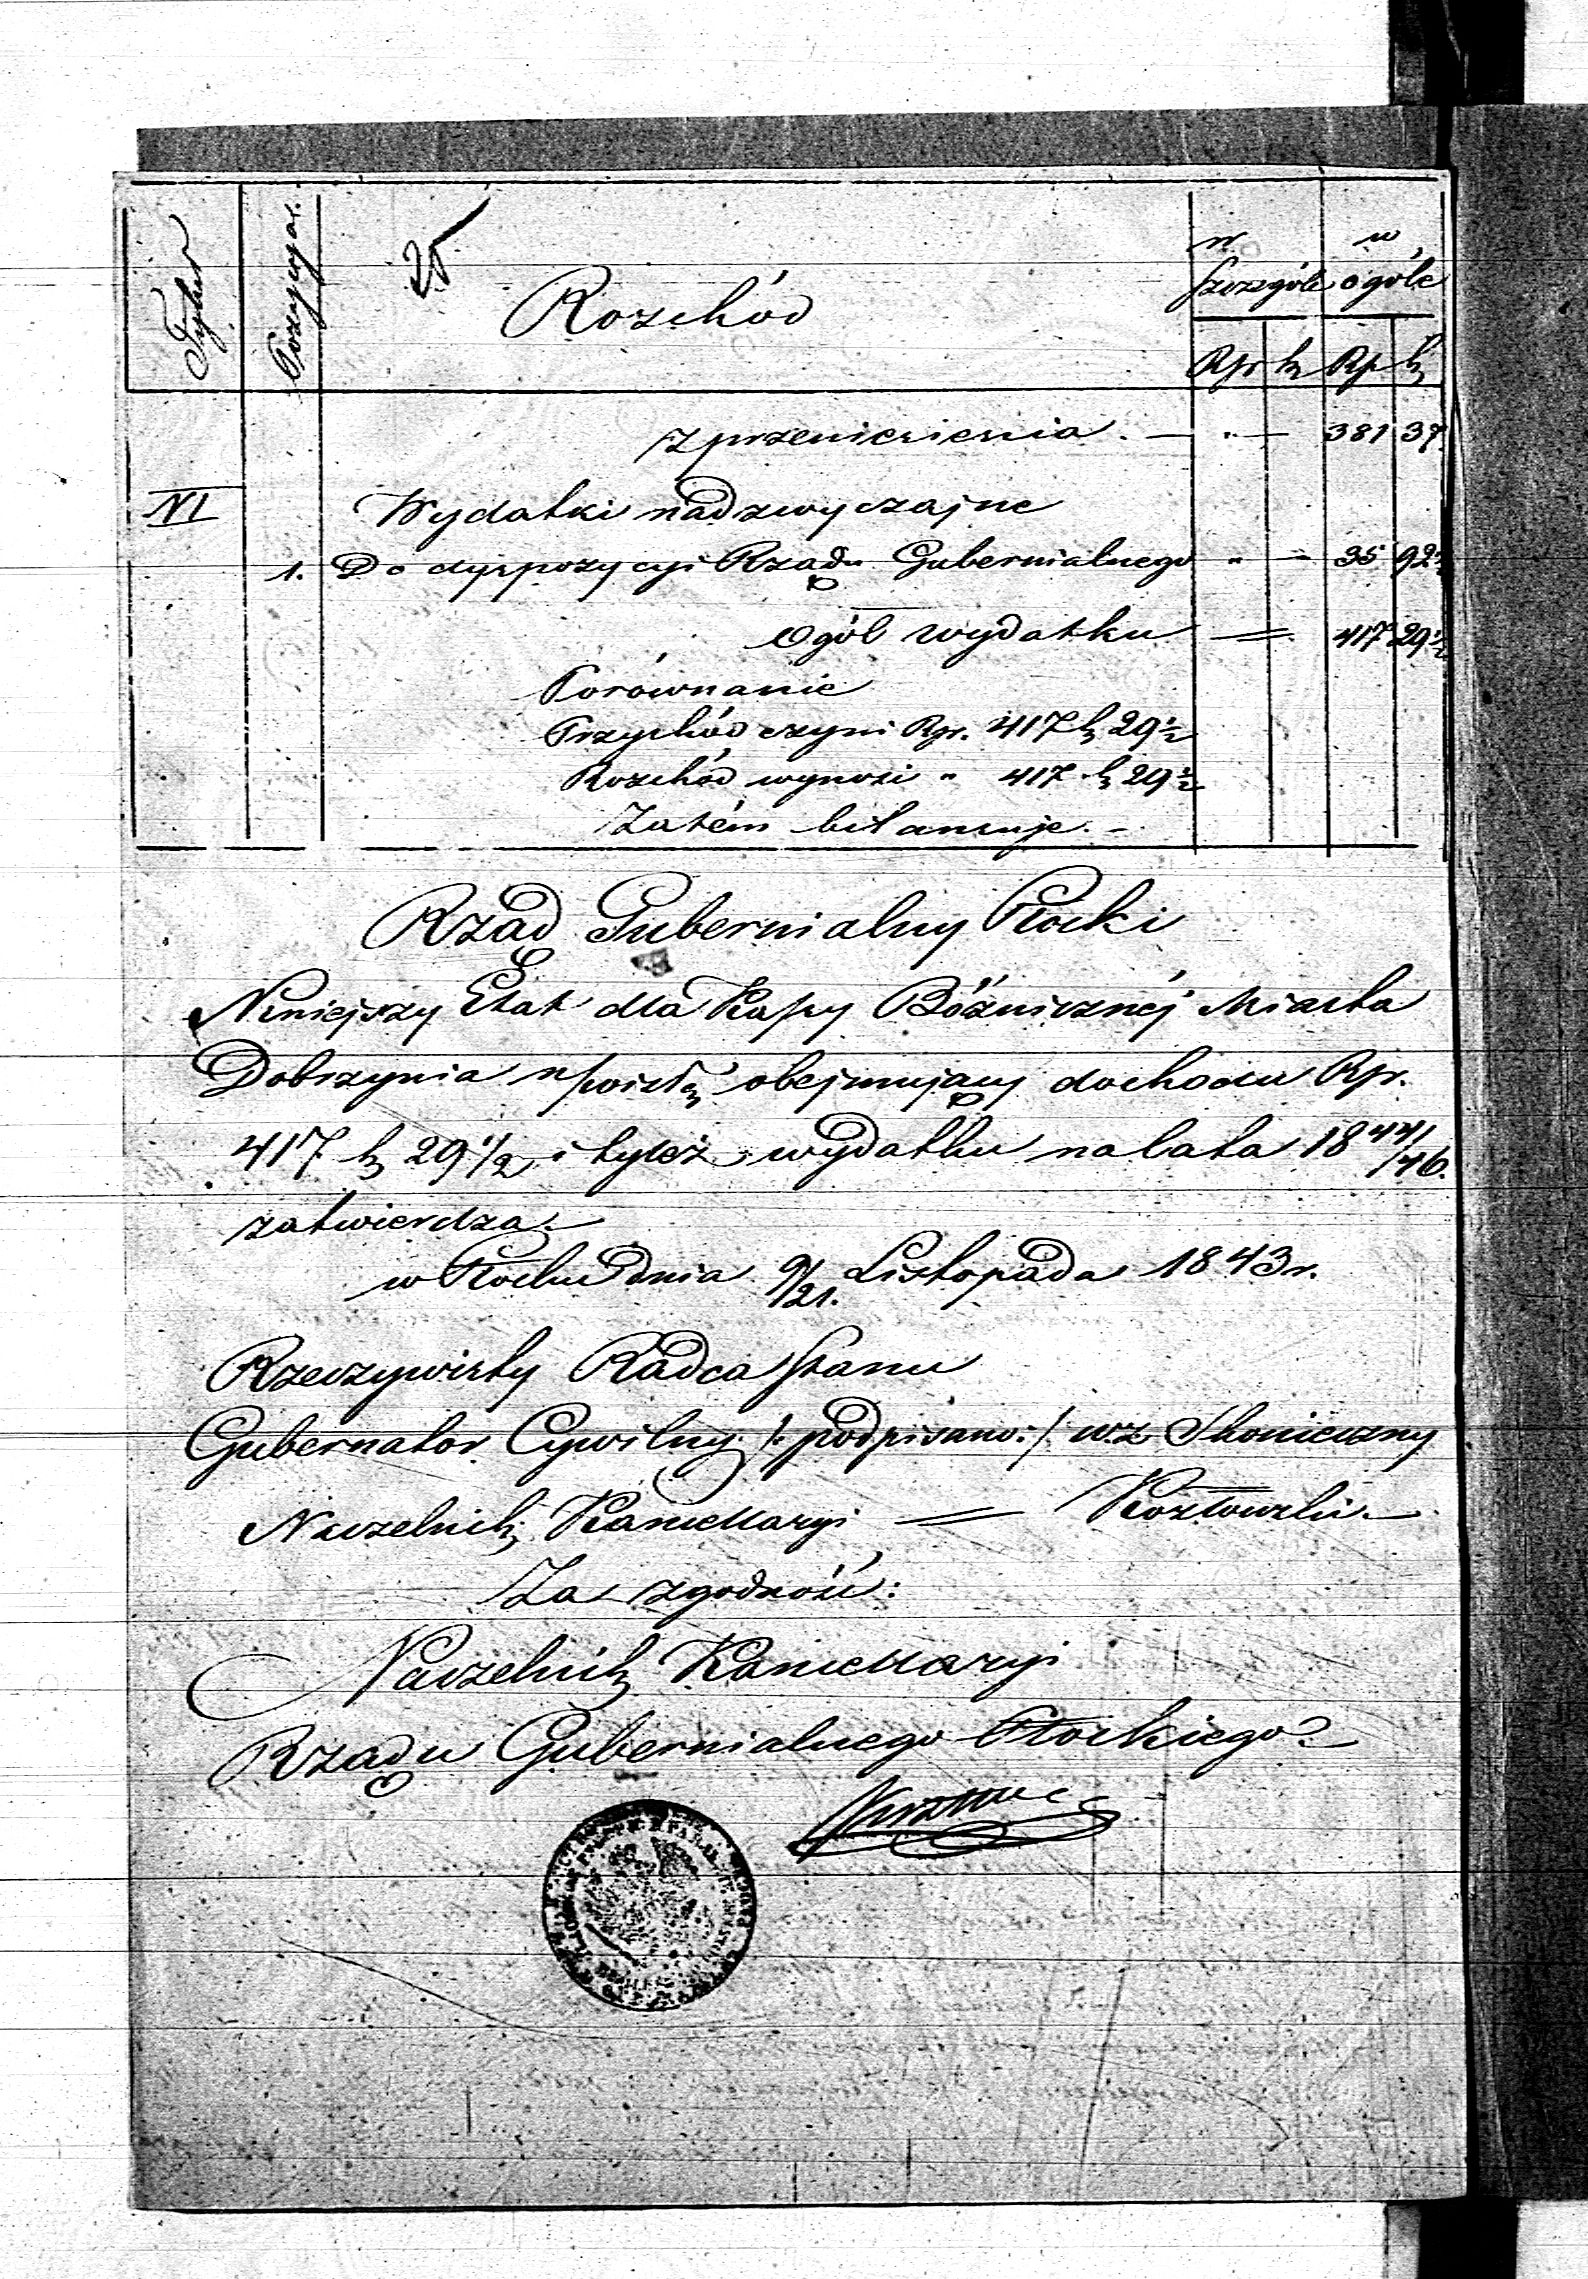 25
Tytuł
Pozycya.
Rozchód
w Szczególe
w ogóle
Rsr k Rsr k
z przeniesienia. — " — 381 37
VI
Wydatki nadzwyczajne
1. Do dyspozycyi Rządu Gubernialnego " — 35 92½
Ogół wydatku = 417 29½
Porównanie
Przychód czyni Rsr. 417 k 29½
Rozchód wynosi " 417 k 29½
Zatém bilansuje. –
Rząd Gubernialny Płocki
Niniejszy Etat dla Kassy Bóżnicznéj Miasta
Dobrzynia n/Wisłą obejmujący dochodu Rsr.
417 k 29 1/2 i tyleż wydatku na lata 1844/46.
zatwierdza. –
w Płocku dnia 9/21. Listopada 1843 r.
Rzeczywisty Radca Stanu
Gubernator Cywilny /: podpisano :/ w.z. Słoniewzny
Naczelnik Kancellaryi = Kozłowski. –
Za zgodność:
Naczelnik Kancellaryi
Rządu Gubernialnego Płockiego